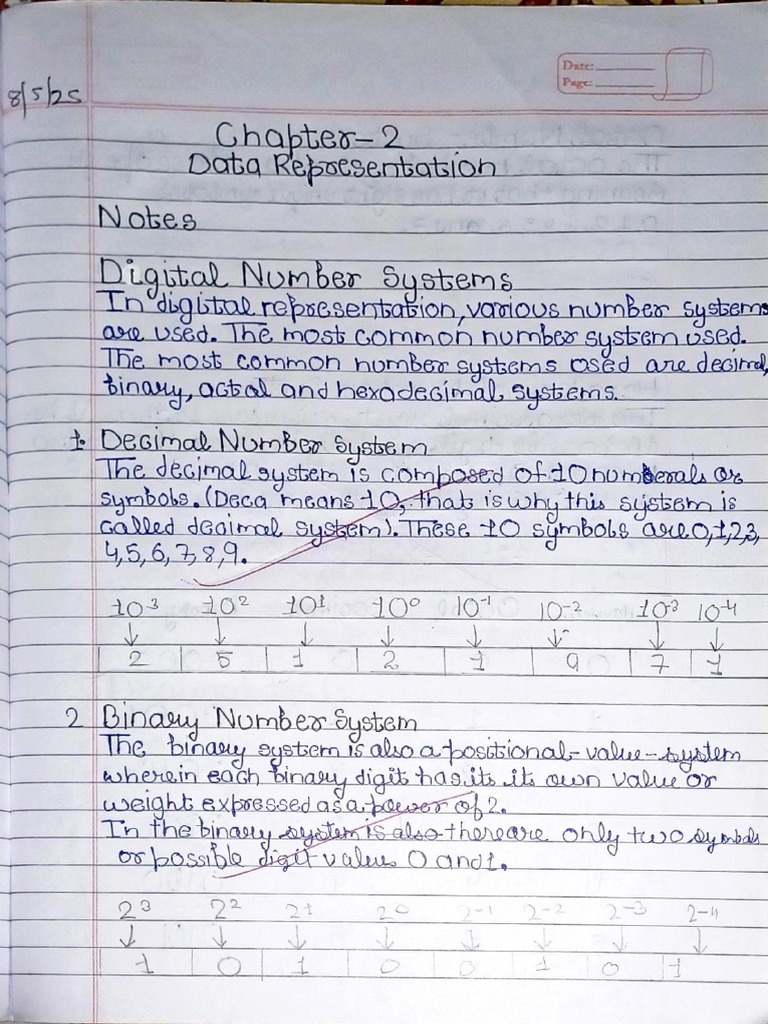 Date:
Page:
8/5/25
Chapter-2
Data Representation
Notes
Digital Number Systems
In digital representation, various number systems
are used. The most common number system used.
The most common number systems osed are decimal,
binary, octal and hexadecimal systems.
1. Decimal Number System
The decimal system is composed of 10 numberals or
symbols. (Deca means 10, that is why this system is
called decimal system). These 10 symbols are 0,1,2,3,
4,5,6,7,8,9.
10-3 10² 10¹ 10⁰ 10-¹ 10-2 10-3 10-4
↓ ↓ ↓ ↓ ↓ ↓ ↓ ↓
2 5 1 2 1 9 7 1
2 Binary Number System
The binary system is also a positional-value-system
wherein each binary digit has its it's own value or
weight expressed as a power of 2.
In the binary system is also there are only two symbols
or possible digit values 0 and 1.
2³ 2² 2¹ 2⁰ 2-1 2-2 2-3 2-4
↓ ↓ ↓ ↓ ↓ ↓ ↓ ↓
1 0 1 0 0 1 0 1